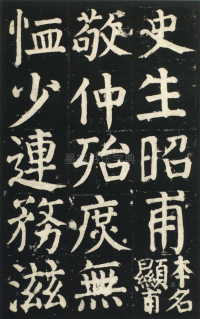 史生昭甫本名顯甫
敬仲殆庶無
恤少連務滋